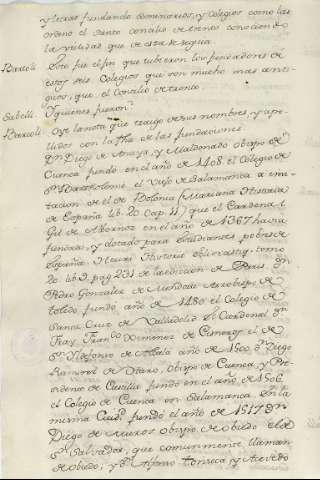 y letras fundando Seminarios, y Colegios como las
ordenó el Santo Concilio de Trento conociendo
la utilidad que de esta se seguia.
Bartoli. Esto fue el fin que tubieron los fundadores de
estos seis Colegios que son mucho mas anti-
guos, que el Concilio de Trento.
Sabelli. Y quienes fueron?
Bartoli. Oye la nota que traigo de sus nombres, y ape-
llidos con la fha. de las fundaciones.
Dn. Diego de Anaya, y Maldonado obispo de
Cuenca fundó en el año de 1408 el Colegio de
Sn. Bartholomé, el Viejo de Salamanca a imi-
tacion de el de Bolonia (Mariana Historia
de España lib. 20 cap. 11) que el Cardenal
Gil de Albornoz en el año de 1367 havia
fundado, y dotado para Estudiantes pobres de
España. Fleuri Historia eclesiastiq. tomo
20 lib. 9 pag. 231 de la edicion de Paris. Dn.
Pedro Gonzalez de Mendoza Arzobispo de
toledo fundó año de 1480 el Colegio de
Santa Cruz de Valladolid. El Cardenal Dn.
Fray Franco. Ximenez de Cisneros el de
Sn. Ildefonso de Alcala año de 1500. Dn. Diego
Ramirez de Otaro, Obispo de Cuenca, y Pre-
sidente de Castilla fundó en el año de 1506
el Colegio de Cuenca en Salamanca. En la
misma Ciudd. fundó el año de 1517 Dn.
Diego de Muros obispo de obiedo el de
Sn. Salvador, que comunmente llaman
de obiedo; y Dn. Alfonso Fonseca y Acevedo